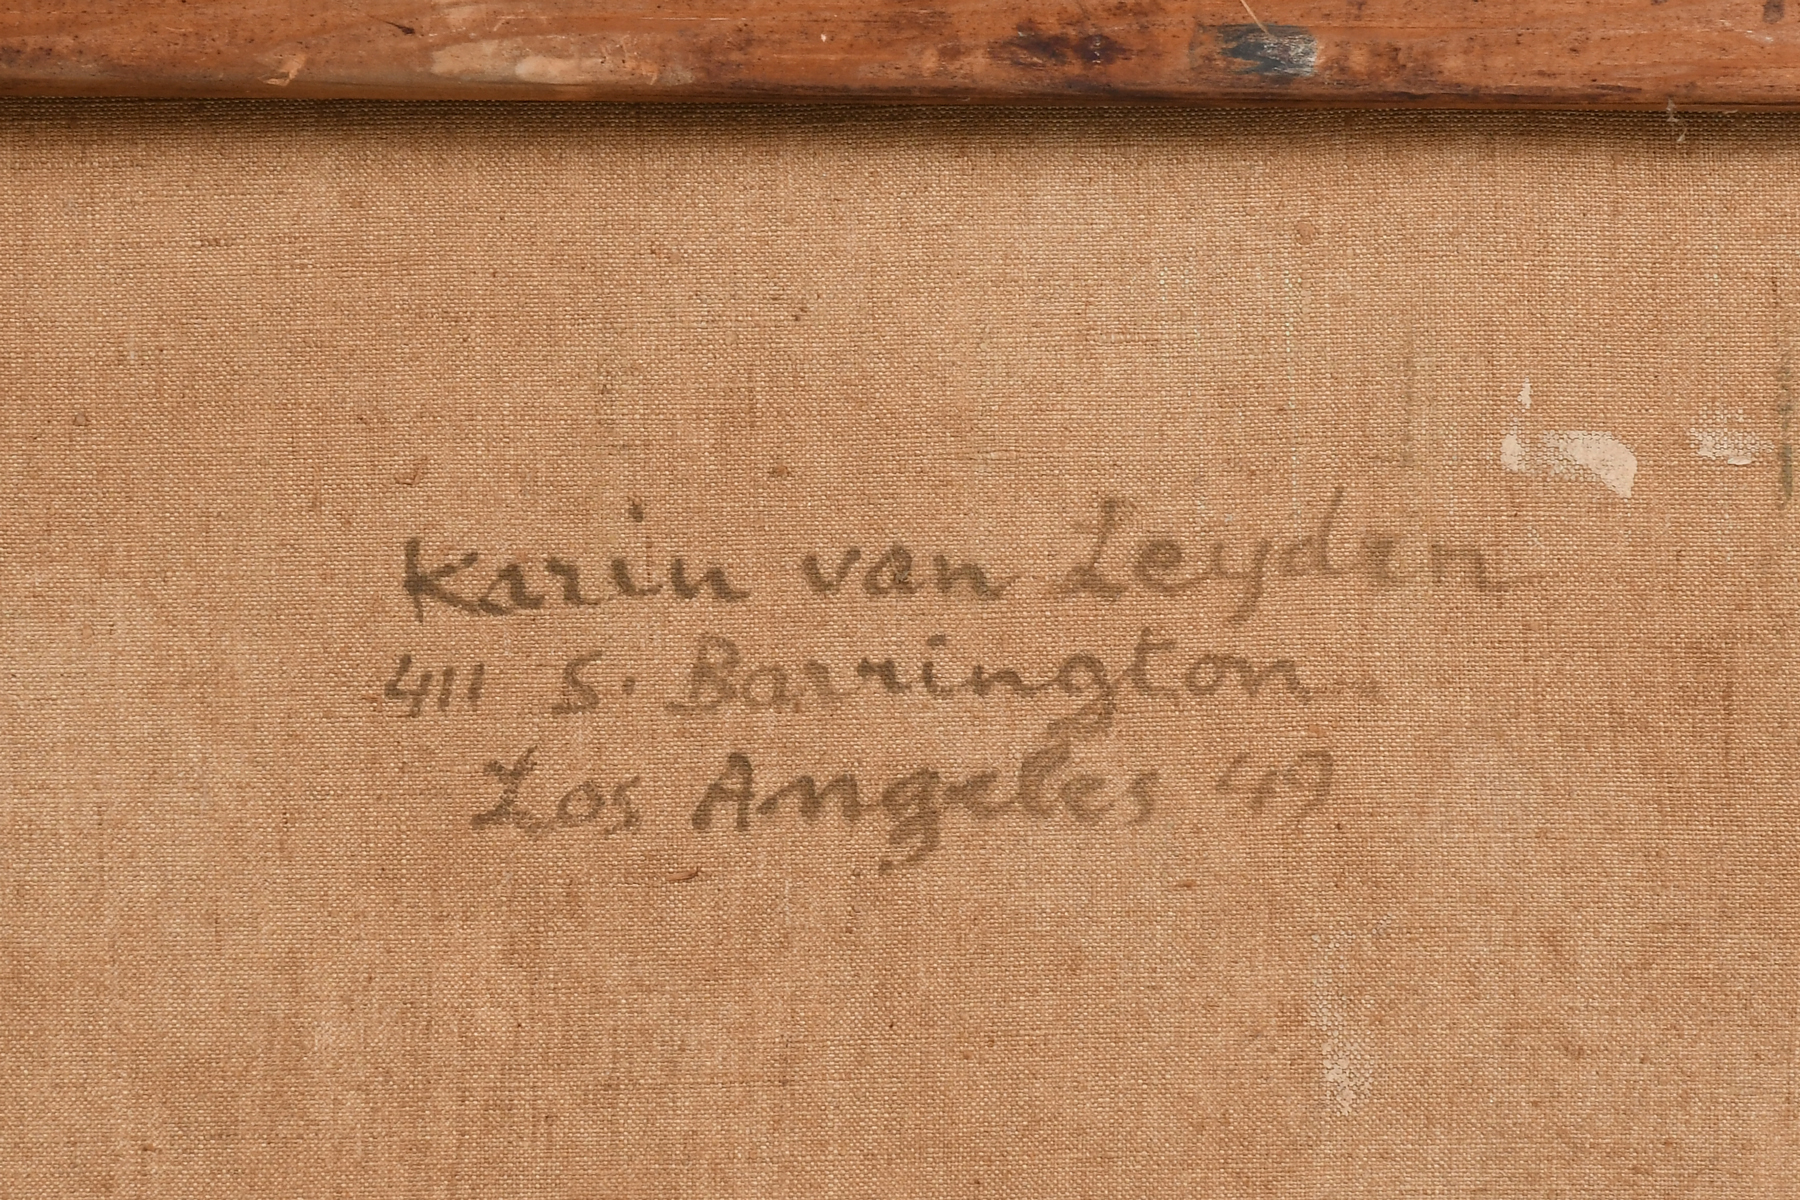 Karin van Leyden
411 S. Barrington
Los Angeles